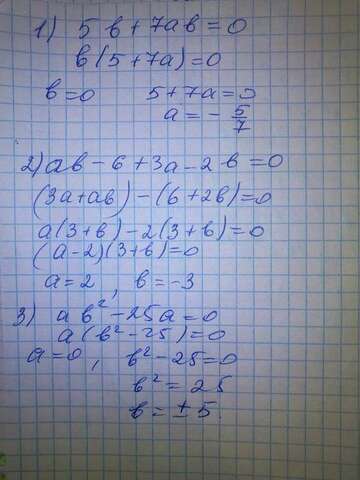 1) 5в+7ав=0
в(5+7а)=0
в=0 5+7а=0
а=-5/7
2) ав-6+3а-2в=0
(3а+ав)-(6+2в)=0
а(3+в)-2(3+в)=0
(а-2)(3+в)=0
а=2, в=-3
3) ав²-25а=0
а(в²-25)=0
а=0, в²-25=0
в²=25
в=±5.